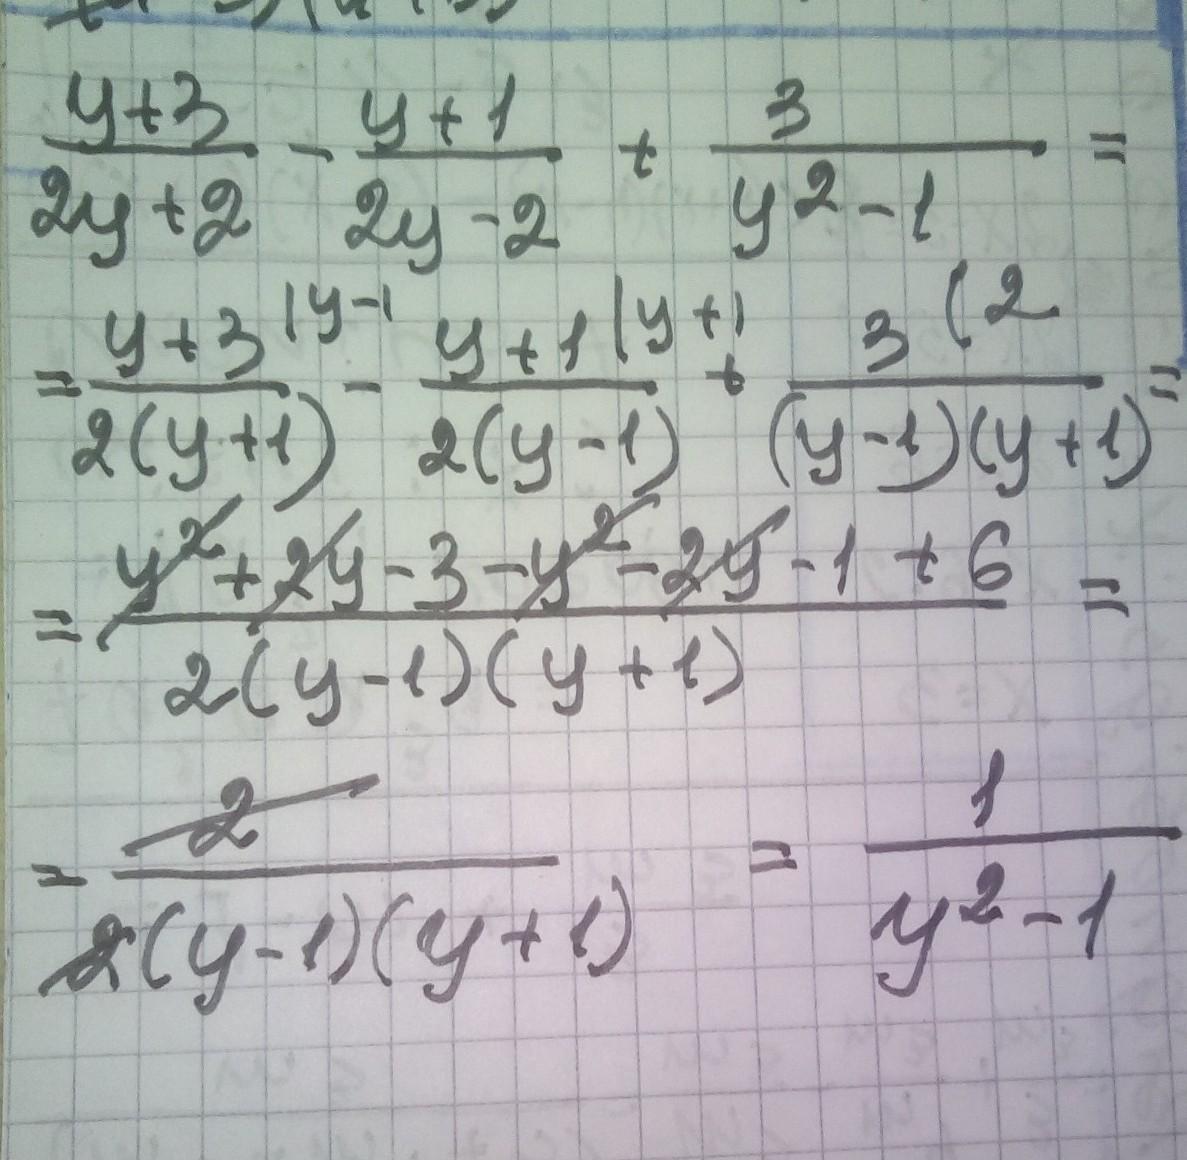 y+3/2y+2 - y+1/2y-2 + 3/y²-1 =
= y+3 |y-1/2(y+1) - y+1 |y+1/2(y-1) + 3 (2/(y-1)(y+1) =
= y²+2y-3-y²-2y-1+6/2(y-1)(y+1) =
= 2/2(y-1)(y+1) = 1/y²-1